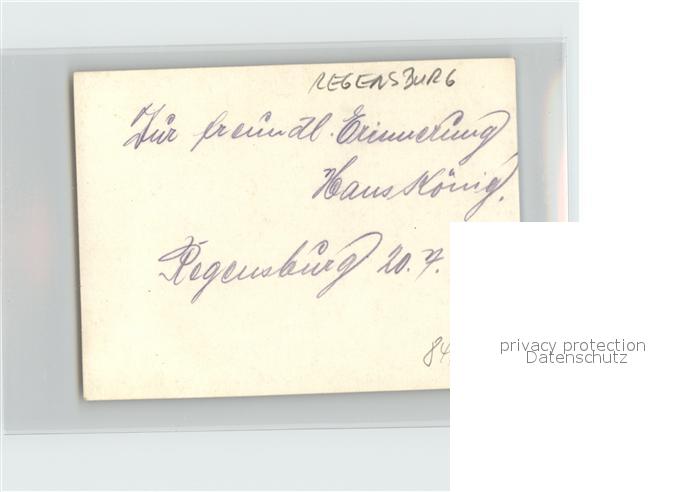 REGENSBURG
Zur freundl. Erinnerung
Hans König.
Regensburg 20. 7.
84
privacy protection
Datenschutz